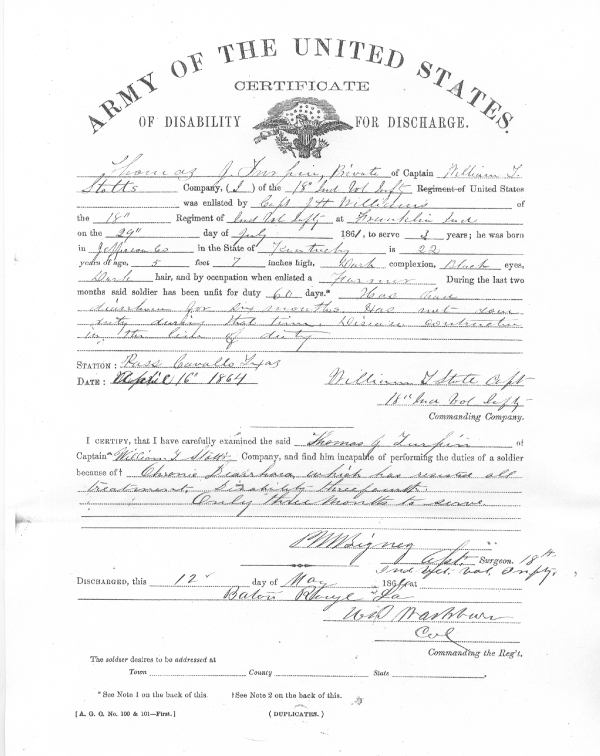 ARMY OF THE UNITED STATES.
CERTIFICATE
OF DISABILITY FOR DISCHARGE.
Thomas J. Turpin, Private of Captain William T.
Stotts Company, (I) of the 18" Ind Vol Infty Regiment of United States
was enlisted by Capt J H Williams of
the 18" Regiment of Ind Vol Infty at Franklin Ind
on the 29" day of July 1861, to serve 3 years; he was born
in Jefferson Co in the State of Kentucky is 22
years of age, 5 feet 7 inches high, Dark complexion, Black eyes,
Dark hair, and by occupation when enlisted a Farmer During the last two
months said soldier has been unfit for duty 60 days.* Has had
diarrhoea for six months. Has not done
duty during that time. Disease contracted
in the line of duty
STATION: Pass Cavallo Texas
DATE: April 16" 1864 William T Stott Capt
18" Ind Vol Infty
Commanding Company.
I CERTIFY, that I have carefully examined the said Thomas J Turpin of
Captain William T. Stotts Company, and find him incapable of performing the duties of a soldier
because of† Chronic Diarrhaea, which has resisted all
treatment. Disability three fourth.
Only three months to serve.
Surgeon. 18th
Ind. Vol. Infty.
DISCHARGED, this 12" day of May 1864 at
Baton Rouge La
Washburn
Col
Commanding the Reg't.
The soldier desires to be addressed at
Town County State
* See Note 1 on the back of this. † See Note 2 on the back of this.
[A. G. O. No. 100 & 101—First.] (DUPLICATES.)